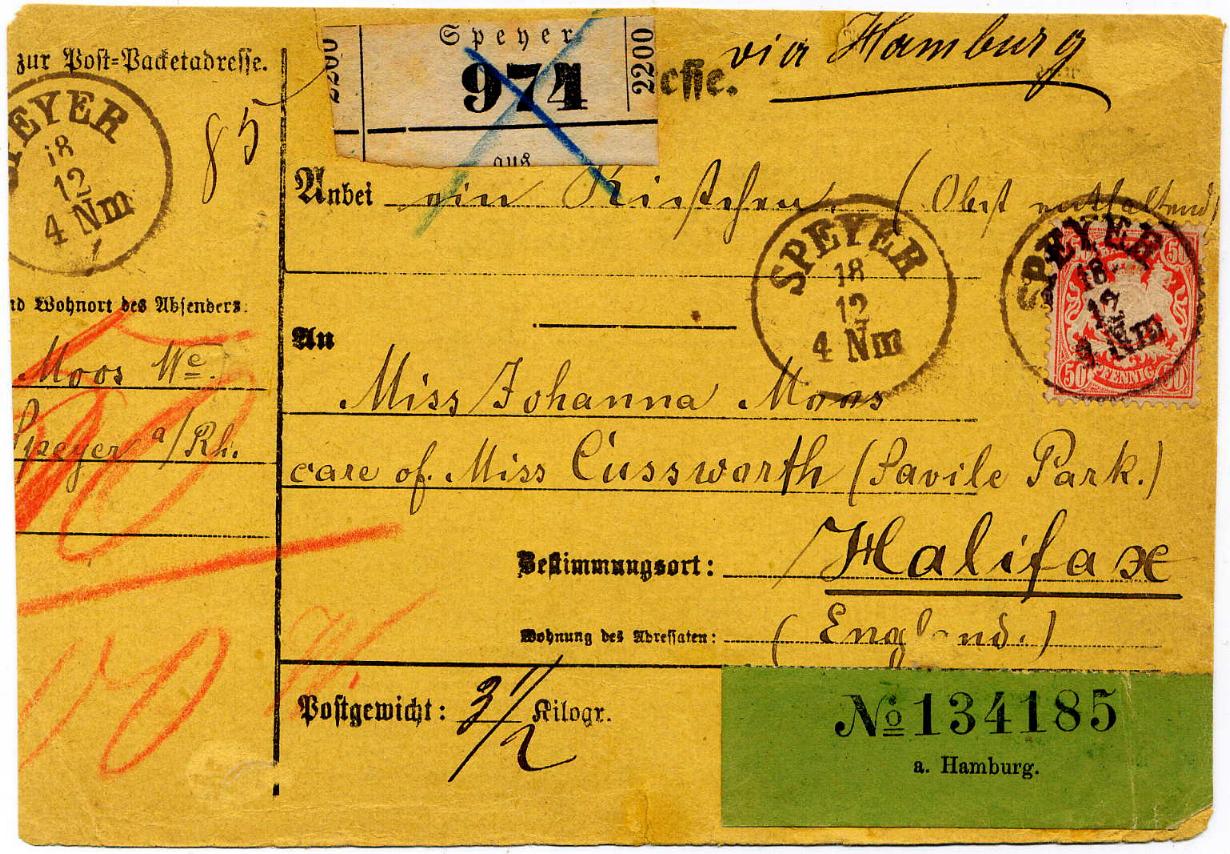 zur Post-Packetadresse.
SPEYER
18
12
4 Nm
85
2200
Speyer
974
2200
aus
esse.
via Hamburg
Anbei ein Kistchen (Obst enthaltend)
SPEYER
18
12
4 Nm
SPEYER
18
12
4 Nm
50
50 PFENNIG 50
nd Wohnort des Absenders.
Moos We
Speyer a/Rh.
An
Miss Johanna Moos
care of. Miss Cussworth (Savile Park.)
Bestimmungsort: Halifax
Wohnung des Adressaten: (England.)
Postgewicht: 3 1/2 Kilogr.
No 134185
a. Hamburg.